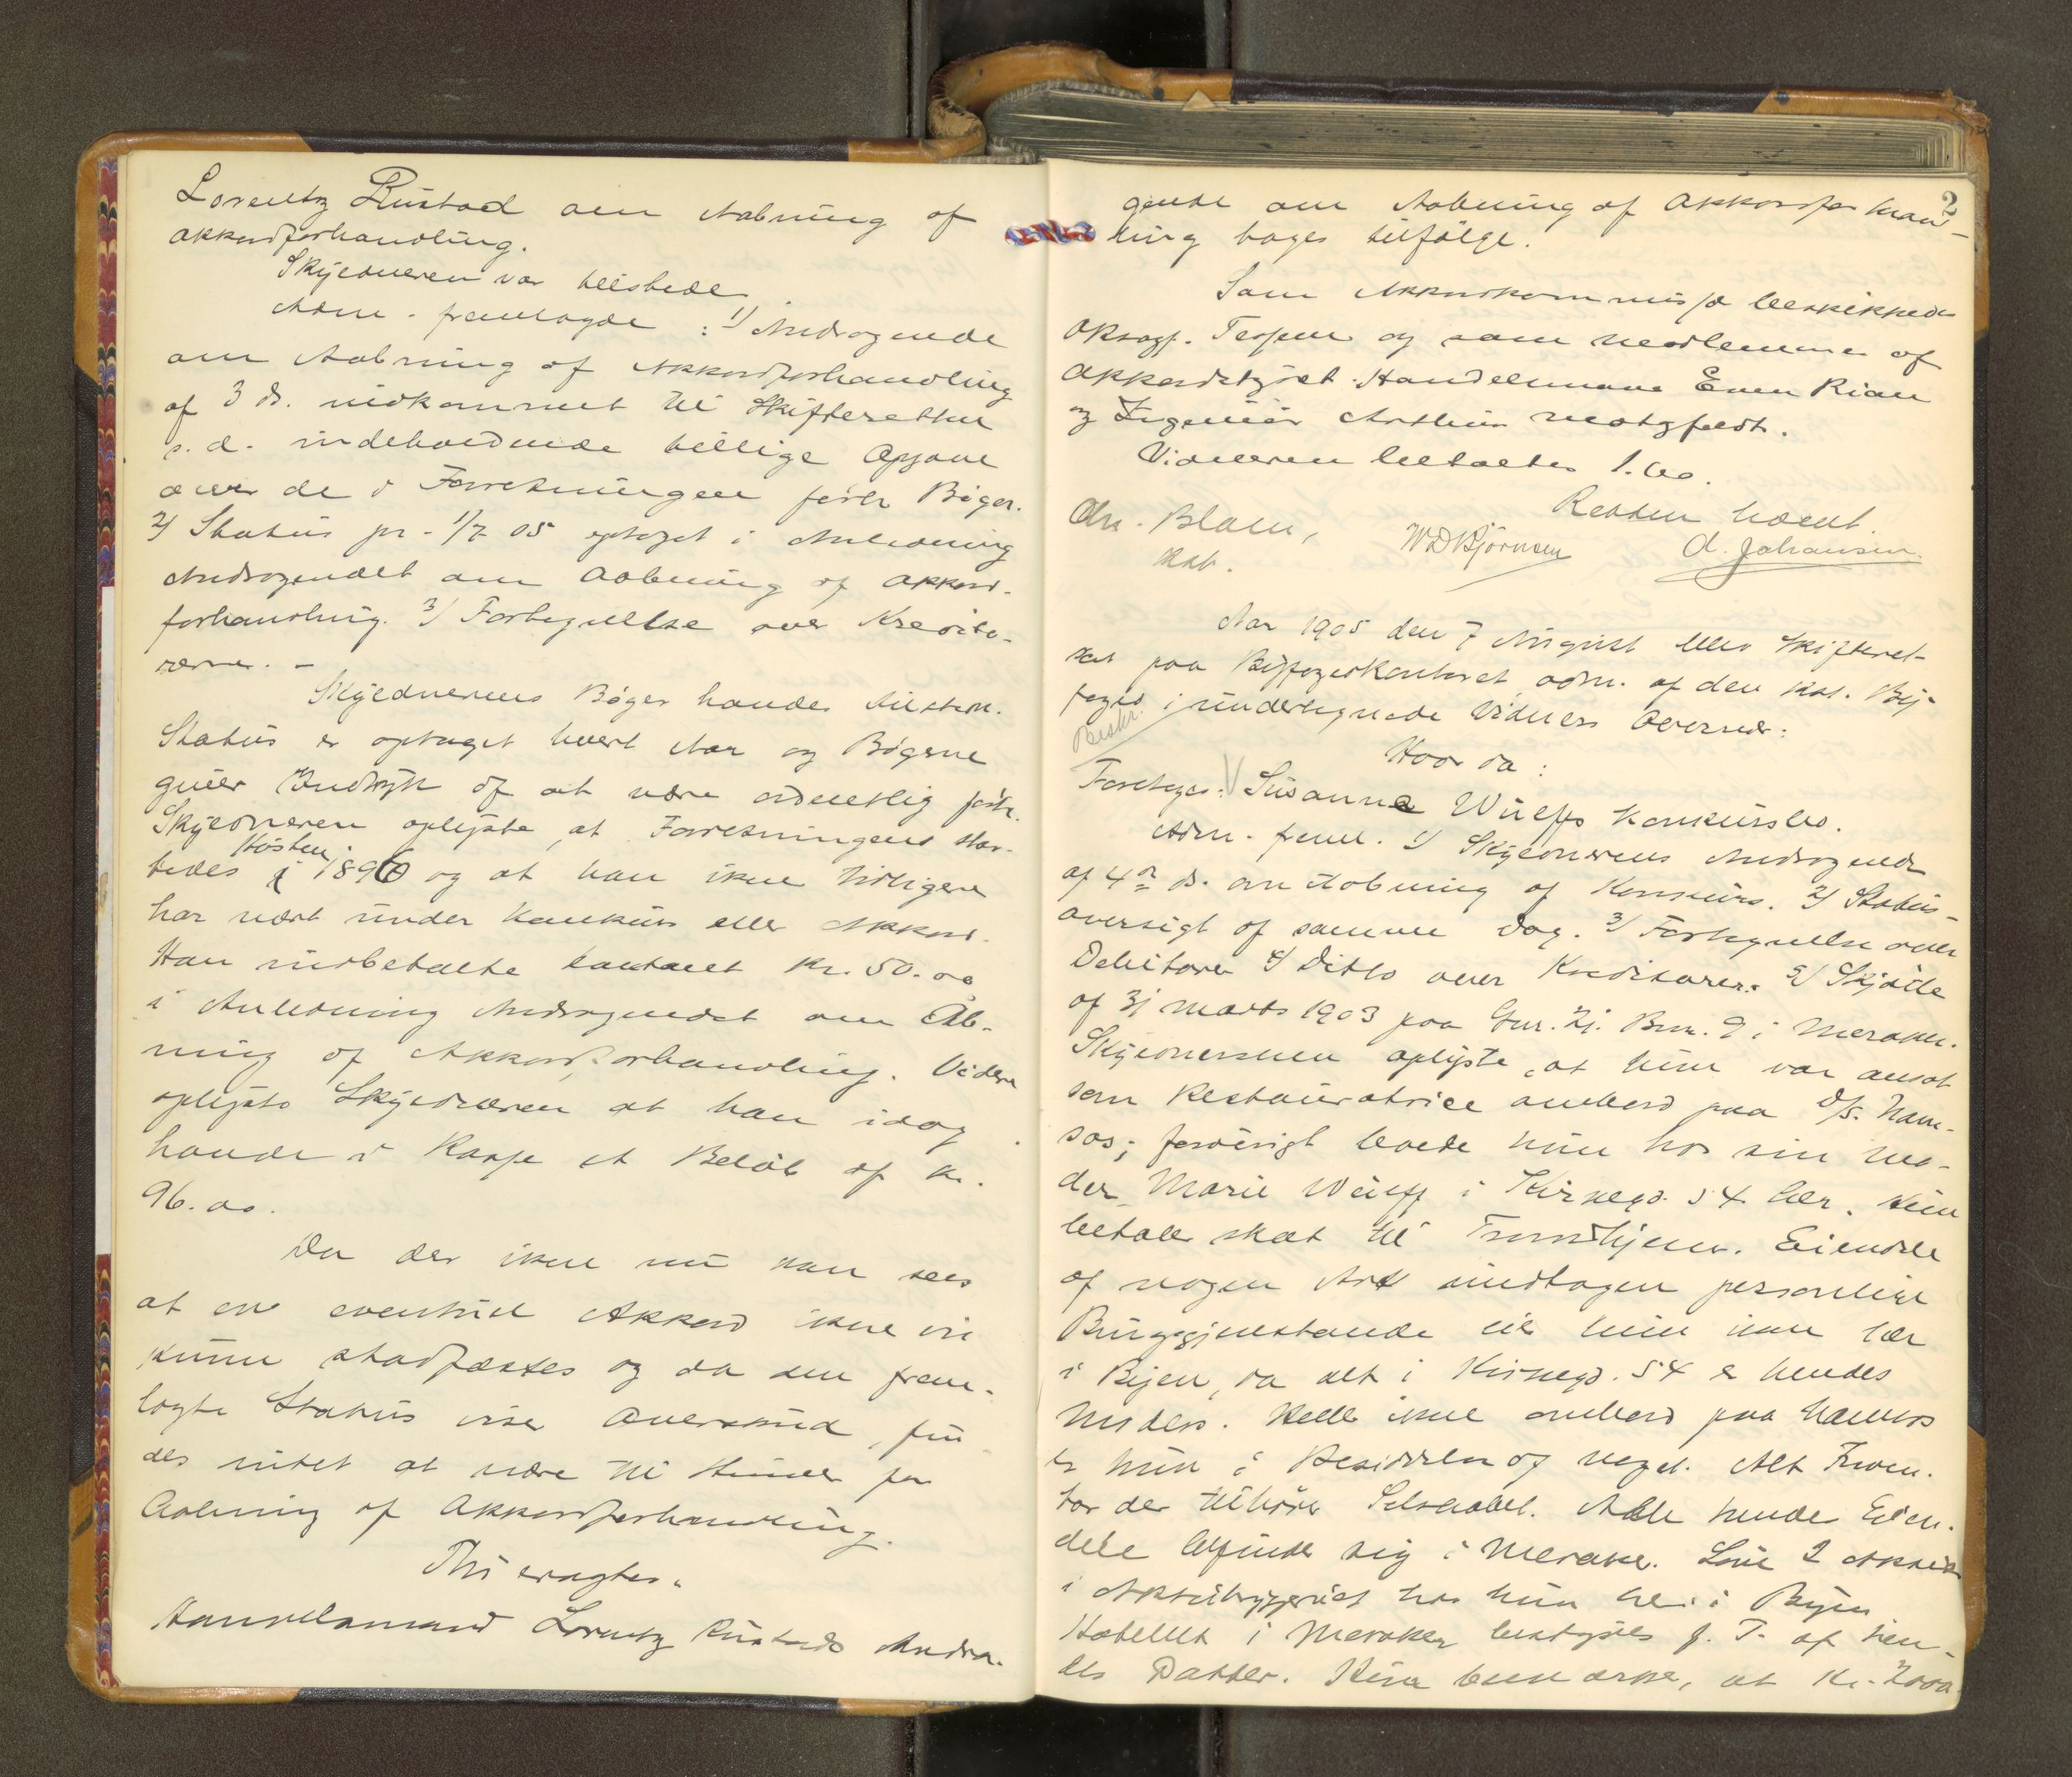 Lorentz Rustad om Aabning af
Akkordforhandling.
Skyldneren var tilstede.
Adm. fremlagde: 1) Andragende
om Aabning af Akkordforhandling
af 3 ds. indkommet til Skifteretten
s.d. indeholdende tillige Opgave
over de i Forretningen førte Bøger.
2) Status pr. 1/7 05 optaget i Anledning
Andragendet om Aabning af Akkord-
forhandling. 3) Fortegnelse over Kredito-
rerne. -
Skyldnerens Bøger havdes tilstede.
Status er optaget hvert Aar og Bøgerne
giver Indtryk af at være ordentlig ført.
Skyldneren oplyste, at Forretningen star-
tedes Høsten 1896 og at han ikke tidligere
har vært under Konkurs eller Akkord.
Han indbetalte kontant Kr. 50.00
i Anledning Andragendet om Åb-
ning af Akkordforhandling. Videre
oplyste Skyldneren at han idag
havde i Kasse et Beløb af Kr.
96.00.
Da der ikke nu kan sees
at en eventuel Akkord ikke vil
kunne stadfæstes og da den frem-
lagte Status viser Overskud, fin-
des intet at være til Hinder for
Aabning af Akkordforhandling.
Thi eragtes:
Handelsmand Lorentz Rustads Andra-
2
gende om Aabning af Akkordforhand-
ling tages tilfølge.
Som Akkordkommissær beskikkedes
Oksagf. Tessem og som Medlemmer af
Akkordstyret Handelsmand Even Rian
og Ingeniør Arthur Motzfeldt.
Vidnerne betaltes 1.60.
Retten hævet.
Chr. Blom,
kst.
W D Bjørnsen
A. Johansen
Aar 1905 den 7 August blev Skifteret
sat paa Byfogedkontoret, adm. af den kst. By-
foged i undertegnede Vidners Overvær:
Beskr.
Hvor da:
Foretoges: Susanne Wulffs Konkursbo.
Adm. freml. 1) Skyldnerens Andragende
af 4de ds. om Aabning af Konkurs. 2) Status-
oversigt af samme Dag. 3) Fortegnelse over
Debitorer 4) Ditto over Kreditorer. 5) Skjøde
af 31 Marts 1903 paa Gnr. 21. Bnr. 9 i Meraker.
Skyldnersken oplyste, at hun var ansat
som Restauratrice ombord paa D/S. Nam-
sos; forøvrigt boede hun hos sin Mo-
der Marie Wulff i Kirkegd. 54 her. Hun
betaler Skat til Trondhjem. Eiendele
af nogen Art undtagen personlige
Brugsgjenstande eier hun ikke her
i Byen, da alt i Kirkegd. 54 er hendes
Moders. Heller ikke ombord paa Namsos
er hun i Besiddelse af noget. Alt Inven-
tar der tilhører Selskabet. Alle hendes Eien-
dele befinder sig i Meraker. Kun 2 Aktier
i Aktiebryggeriet har hun her i Byen.
Hotellet i Meraker bestyres f. T. af hen-
des Datter. Hun bemærker, at Kr. 2000